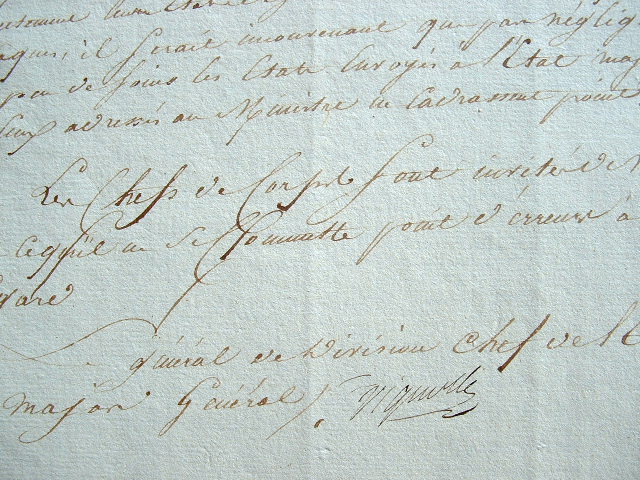 ques, il serait inconvenant que par néglig
peu de soins les Etats Envoyés à l'Etat maj
ceux adressés au Ministre ne Cadrassent point
Les Chefs de Corps Sont invités de
ce qu'il ne Se Committe point d'érreurs à
gard
général de Division Chef de l'E
major Général, Vignolle